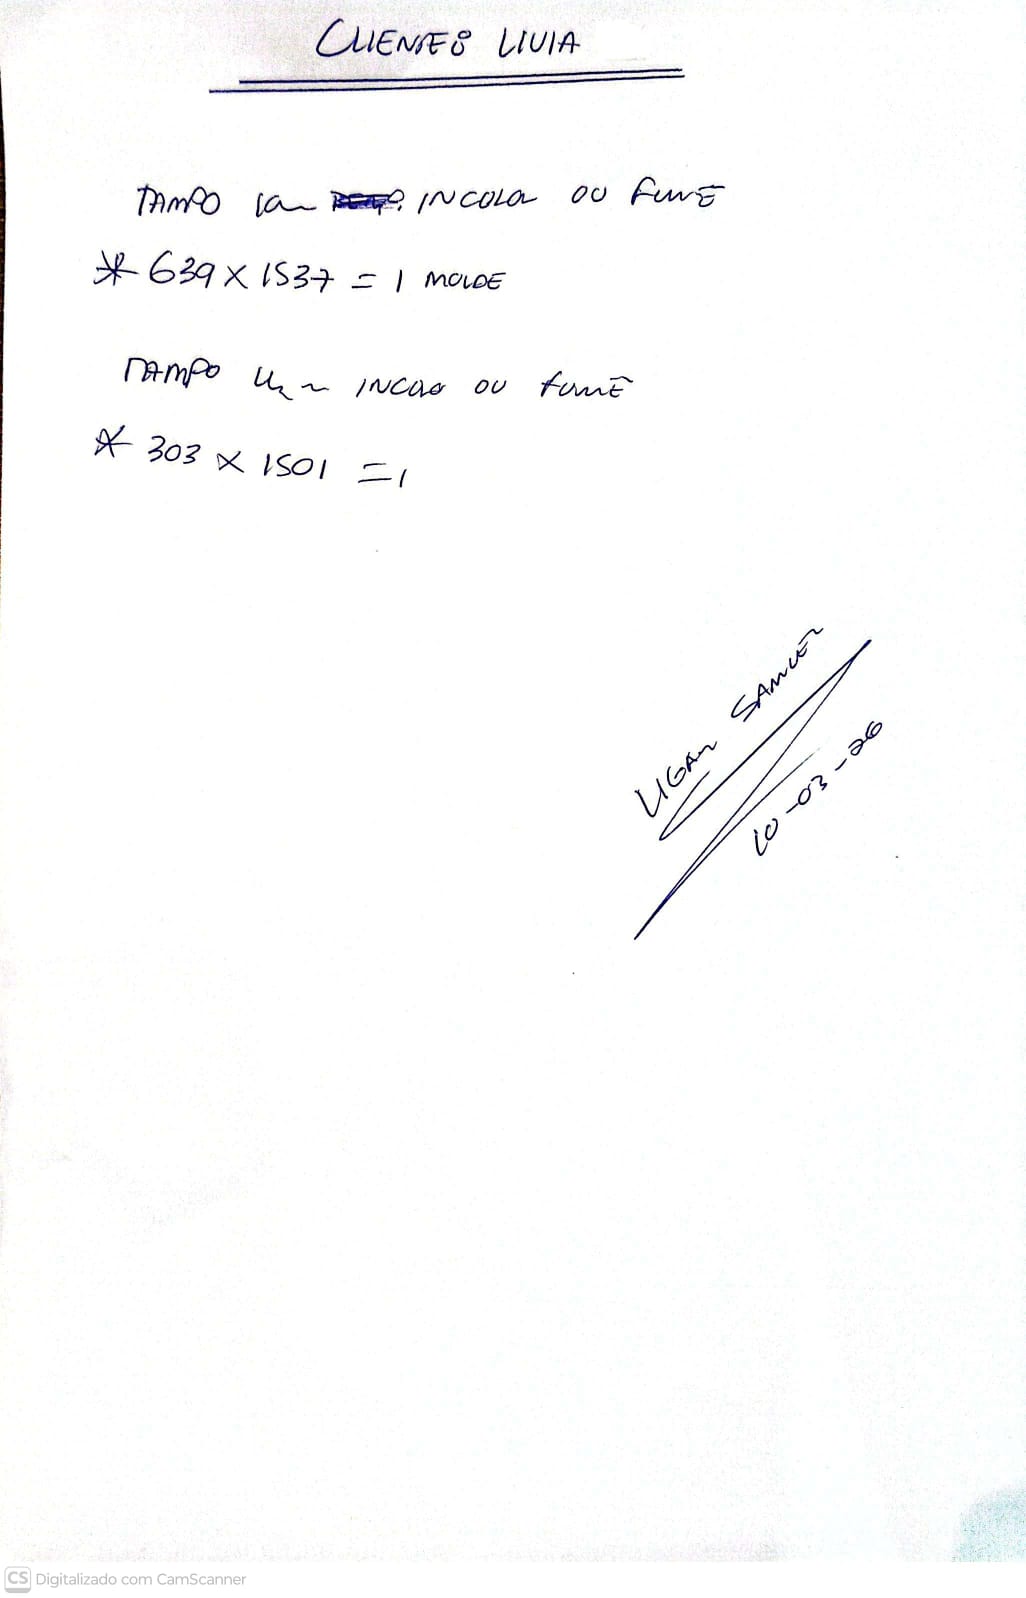 CLIENTES LIVIA
TAMPO INCOLOR OU FUMÊ
* 639 X 1537 = 1 MOLDE
TAMPO INCOLO OU FUMÊ
* 303 X 1501 = 1
LIGAR SAMUEL
10-03-26
CS Digitalizado com CamScanner